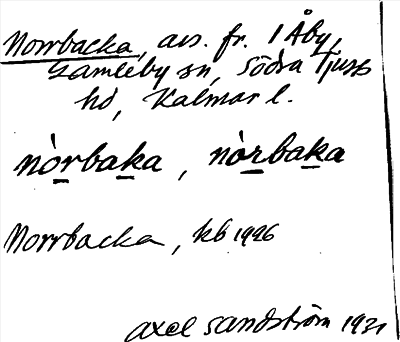 Norrbacka, avs. fr. 1 Åby,
Gamleby sn, Södra Tjusts
hd, Kalmar l.
nòrbaka, nòrbaka
Norrbacka, kb 1926
Axel Sandström 1931